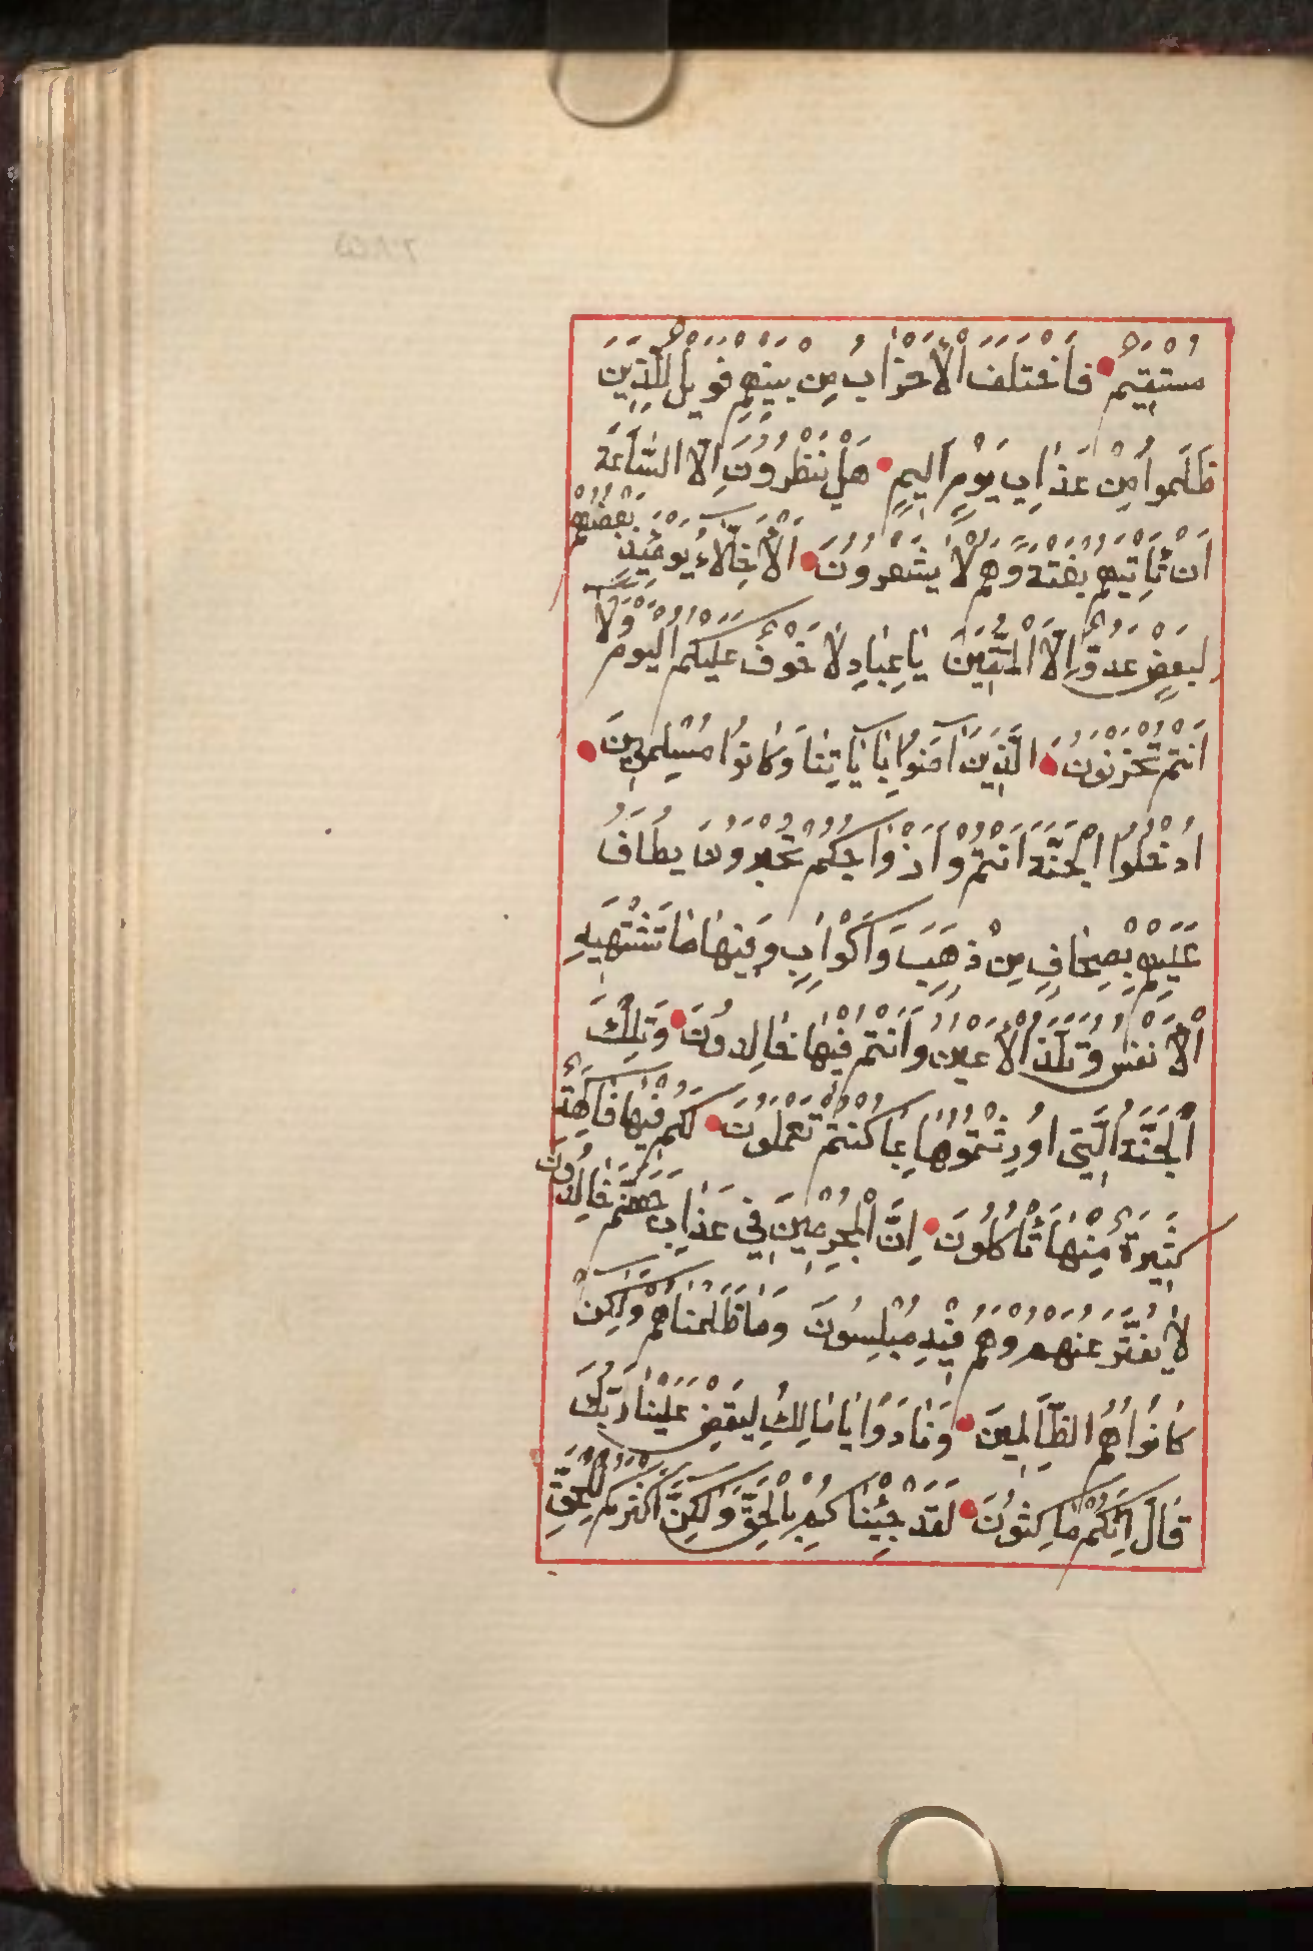 مُسْتَقِيمٌ فَاخْتَلَفَ الْأَحْزَابُ مِنْ بَيْنِهِمْ فَوَيْلٌ لِلَّذِينَ
ظَلَمُوا مِنْ عَذَابِ يَوْمٍ أَلِيمٍ هَلْ يَنْظُرُونَ إِلَّا السَّاعَةَ
أَنْ تَأْتِيَهُمْ بَغْتَةً وَهُمْ لَا يَشْعُرُونَ الْأَخِلَّاءُ يَوْمَئِذٍ بَعْضُهُمْ
لِبَعْضٍ عَدُوٌّ إِلَّا الْمُتَّقِينَ يَا عِبَادِ لَا خَوْفٌ عَلَيْكُمُ الْيَوْمَ وَلَا
أَنْتُمْ تَحْزَنُونَ الَّذِينَ آمَنُوا بِآيَاتِنَا وَكَانُوا مُسْلِمِينَ
ادْخُلُوا الْجَنَّةَ أَنْتُمْ وَأَزْوَاجُكُمْ تُحْبَرُونَ يُطَافُ
عَلَيْهِمْ بِصِحَافٍ مِنْ ذَهَبٍ وَأَكْوَابٍ وَفِيهَا مَا تَشْتَهِيهِ
الْأَنْفُسُ وَتَلَذُّ الْأَعْيُنُ وَأَنْتُمْ فِيهَا خَالِدُونَ وَتِلْكَ
الْجَنَّةُ الَّتِي أُورِثْتُمُوهَا بِمَا كُنْتُمْ تَعْمَلُونَ لَكُمْ فِيهَا فَاكِهَةٌ
كَثِيرَةٌ مِنْهَا تَأْكُلُونَ إِنَّ الْمُجْرِمِينَ فِي عَذَابِ جَهَنَّمَ خَالِدُونَ
لَا يُفَتَّرُ عَنْهُمْ وَهُمْ فِيهِ مُبْلِسُونَ وَمَا ظَلَمْنَاهُمْ وَلَكِنْ
كَانُوا هُمُ الظَّالِمِينَ وَنَادَوْا يَا مَالِكُ لِيَقْضِ عَلَيْنَا رَبُّكَ
قَالَ إِنَّكُمْ مَاكِثُونَ لَقَدْ جِئْنَاكُمْ بِالْحَقِّ وَلَكِنَّ أَكْثَرَكُمْ لِلْحَقِّ